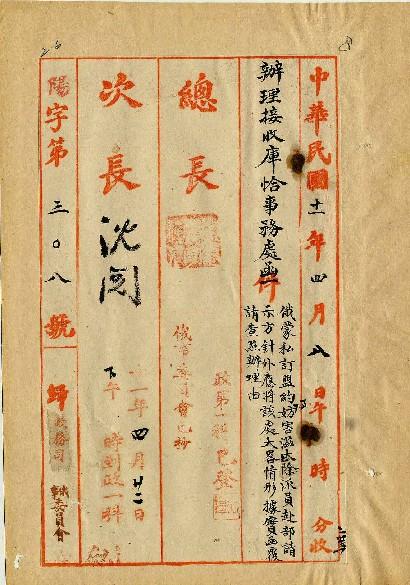 中華民國十一年四月八日午時分收
辦理接收庫恰事務處函件
俄蒙私訂盟約妨害滋大除派員赴部請
示方針外應將該處大畧情形據實函覆
請查照辦理由
總長
政第一科已發
俄事委員會已抄
次長
沈閱
十一年四月廿二日
下午時到政一科
陽字第三〇八號
歸政務司
俄事委員會